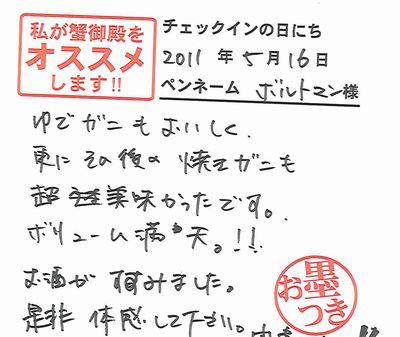 私が蟹御殿を
オススメ
します!!
チェックインの日にち
2011 年 5月 16日
ペンネーム ボルトマン様
ゆでガニもおいしく、
更にその後の焼きガニも
超美味かったです。
ボリューム満天。!!
お酒がすすみました。
是非体感して下さい。
お墨つき